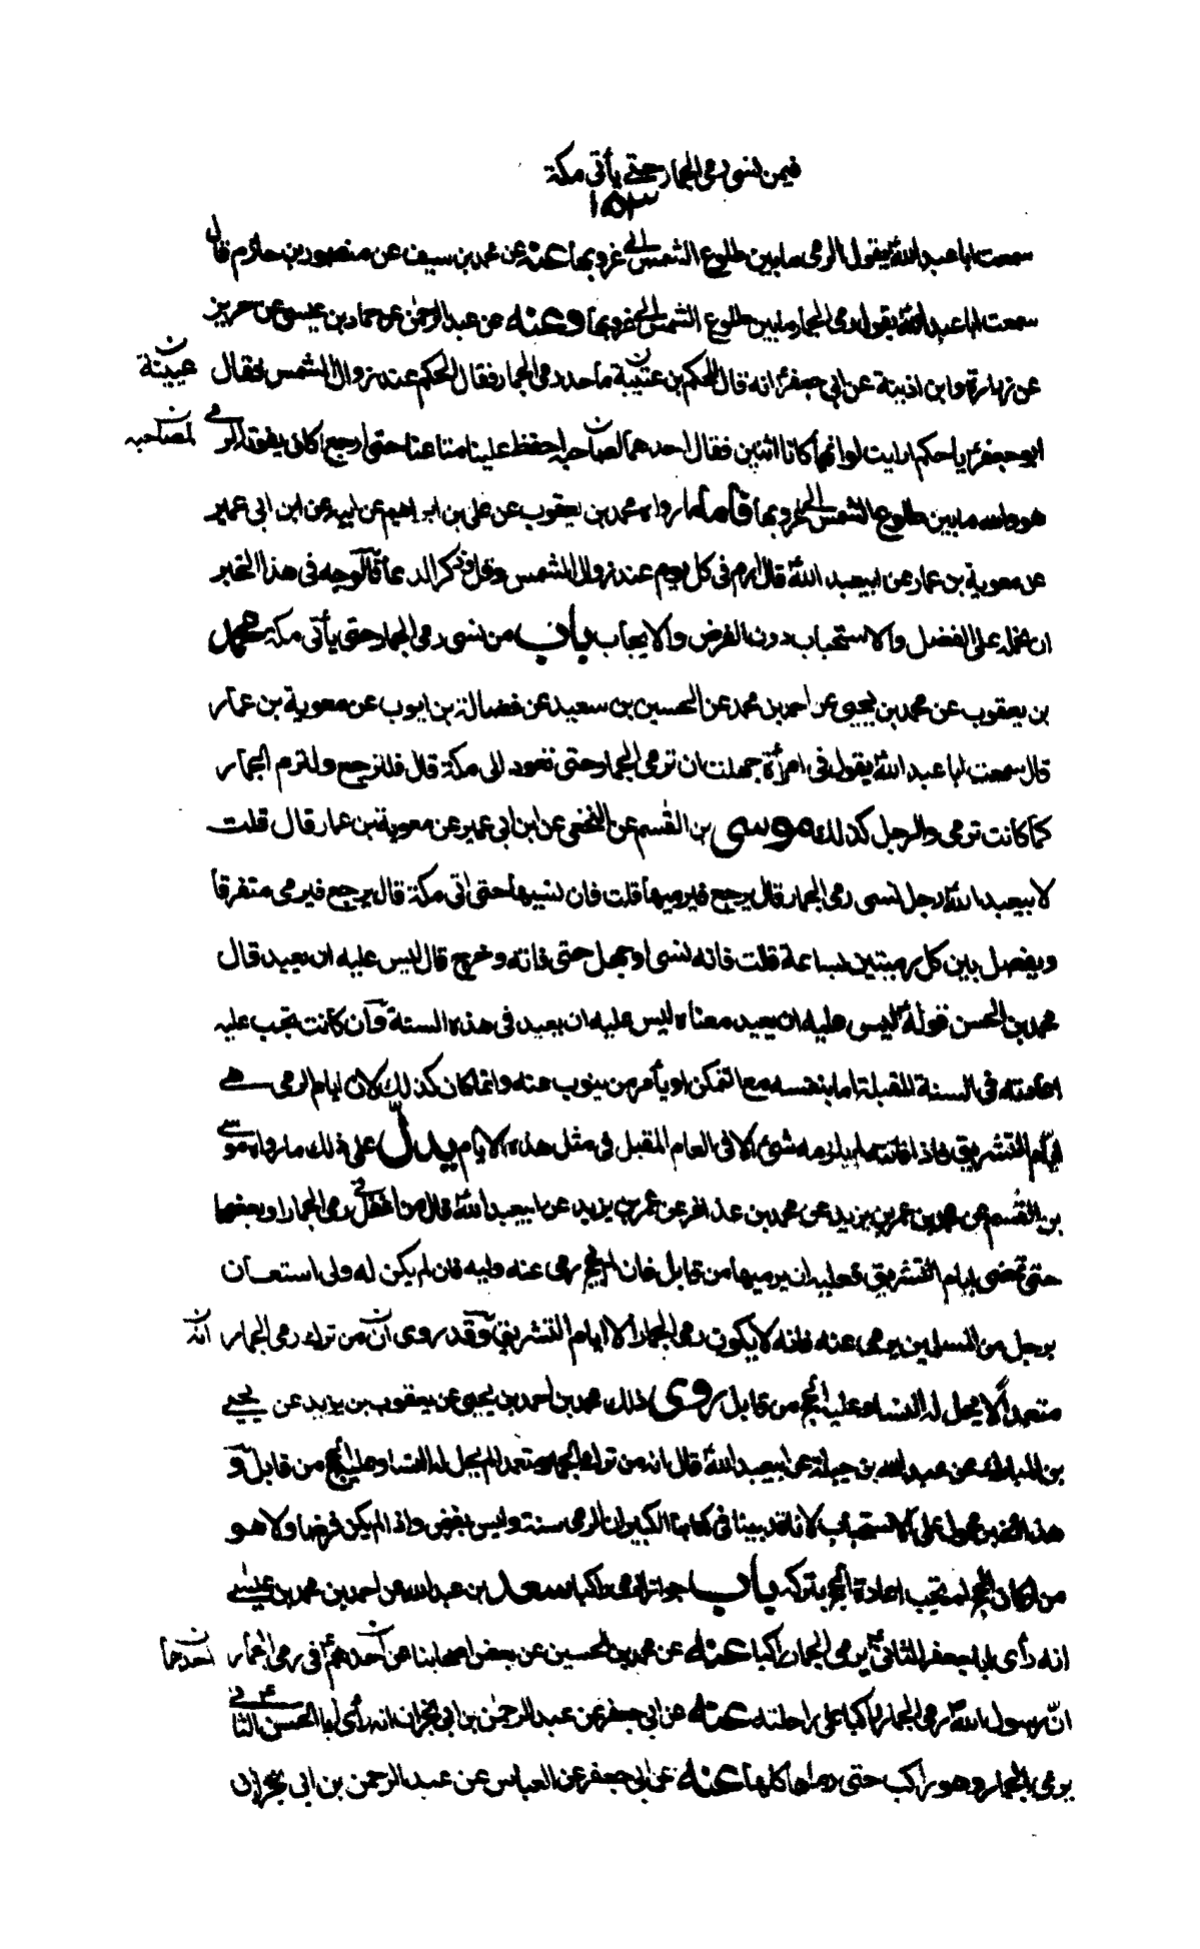 فيمن نسى رمى الجمار حتى يأتى مكة
١٥٣
سمعت ابا عبد اللهؑ يقول الرمى ما بين طلوع الشمس الى غروبها عنه عن محمد بن سيف عن منصور بن حازم قال
سمعت ابا عبد اللهؑ يقول رمى الجمار ما بين طلوع الشمس الى غروبها وعنه عن عبد الرحمٰن عن حماد بن عيسى عن حريز
عن زرارة وابن اذينة عن ابى جعفرؑ انه قال للحكم بن عتيبة ما حد رمى الجمار فقال الحكم عند زوال الشمس فقال عيينة ن
ابو جعفرؑ يا حكم ارايت لو انهما كانا اثنين فقال احدهما لصاحبه احفظ علينا متاعنا حتى ارجع اكان يفوته الرمى لصاحبه ن
هو والله ما بين طلوع الشمس الى غروبها فاما ما رواه محمد بن يعقوب عن على بن ابراهيم عن ابيه عن ابن ابى عمير
عن معوية بن عمار عن ابيعبد اللهؑ قال ارم فى كل يوم عند زوال الشمس وقل وذكر الدعآء فالوجه فى هذا الخبر
ان نحمله على الفضل والاستحباب دون الفرض والايجاب باب من نسى رمى الجمار حتى يأتى مكة محمد
بن يعقوب عن محمد بن يحيى عن احمد بن محمد عن الحسين بن سعيد عن فضالة بن ايوب عن معوية بن عمار
قال سمعت ابا عبد اللهؑ يقول فى امرأة جهلت ان ترمى الجمار حتى تعود الى مكة قال فلترجع ولترم الجمار
كما كانت ترمى والرجل كذلك موسى بن القٰسم عن النخعى عن ابن ابى عمير عن معوية بن عمار قال قلت
لابيعبد اللهؑ رجل نسى رمى الجمار قال يرجع فيرميها قلت فان نسيها حتى اتى مكة قال يرجع فيرمى متفرقا
ويفصل بين كل رميتين بساعة قلت فانه نسى او جهل حتى فاته وخرج قال ليس عليه ان يعيد قال
محمد بن الحسن قولهؑ ليس عليه ان يعيد معناه ليس عليه ان يعيد فى هذه السنة وان كانت تجب عليه
اعادته فى السنة المقبلة اما بنفسه مع التمكن او يأمر من ينوب عنه وانما كان كذلك لان ايام الرمى هى
ايّام التشريق فاذا فاتته لم يلزمه شئ الا فى العام المقبل فى مثل هذه الايام يدلّ على ذلك ما رواه موسى
بن القٰسم عن محمد بن عمر بن يزيد عن محمد بن عذافر عن عمر بن يزيد عن ابيعبد اللهؑ قال من اغفل رمى الجمار او بعضها
حتى تمضى ايام التشريق فعليه ان يرميها من قابل فان لم يحج رمى عنه وليه فان لم يكن له ولى استعان
برجل من المسلمين يرمى عنه فانه لا يكون رمى الجمار الا ايام التشريق وقد روى ان من ترك رمى الجمار انّه ن
متعمدًا لا يحل له النساء وعليه الحج من قابل روى ذلك محمد بن احمد بن يحيى عن يعقوب بن يزيد عن يحيى
بن المبارك عن عبد الله بن جبلة عن ابيعبد اللهؑ قال انه من ترك رمى الجمار متعمدا لم يحل له النساء وعليه الحج من قابل و
هذا الخبر محمول على الاستحباب لانا قد بينا فى كتابنا الكبير ان الرمى سنة وليس بفرض واذا لم يكن فرضا ولا هو
من اركان الحج لم تجب اعادة الحج بتركه باب جواز الرمى راكبا سعد بن عبد الله عن احمد بن محمد بن عيسى
انه رأى ابا جعفر الثانىؑ يرمى الجمار راكبا عنه عن محمد بن الحسين عن بعض اصحابنا عن احدهمؑ فى رمى الجمار احدهما ن
انّ رسول اللهؐ رمى الجمار راكبا على راحلته عنه عن ابى جعفر عن عبد الرحمٰن بن ابى نجران انه رأى ابا الحسن الثانىؑ
يرمى الجمار وهو راكب حتى رماها كلها عنه عن ابى جعفر عن العباس عن عبد الرحمن بن ابى نجران